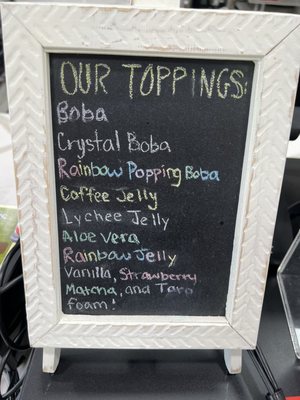 OUR TOPPINGS:
Boba
Crystal Boba
Rainbow Popping Boba
Coffee Jelly
Lychee Jelly
Aloe vera
Rainbow Jelly
Vanilla, Strawberry
Matcha, and Taro
foam!